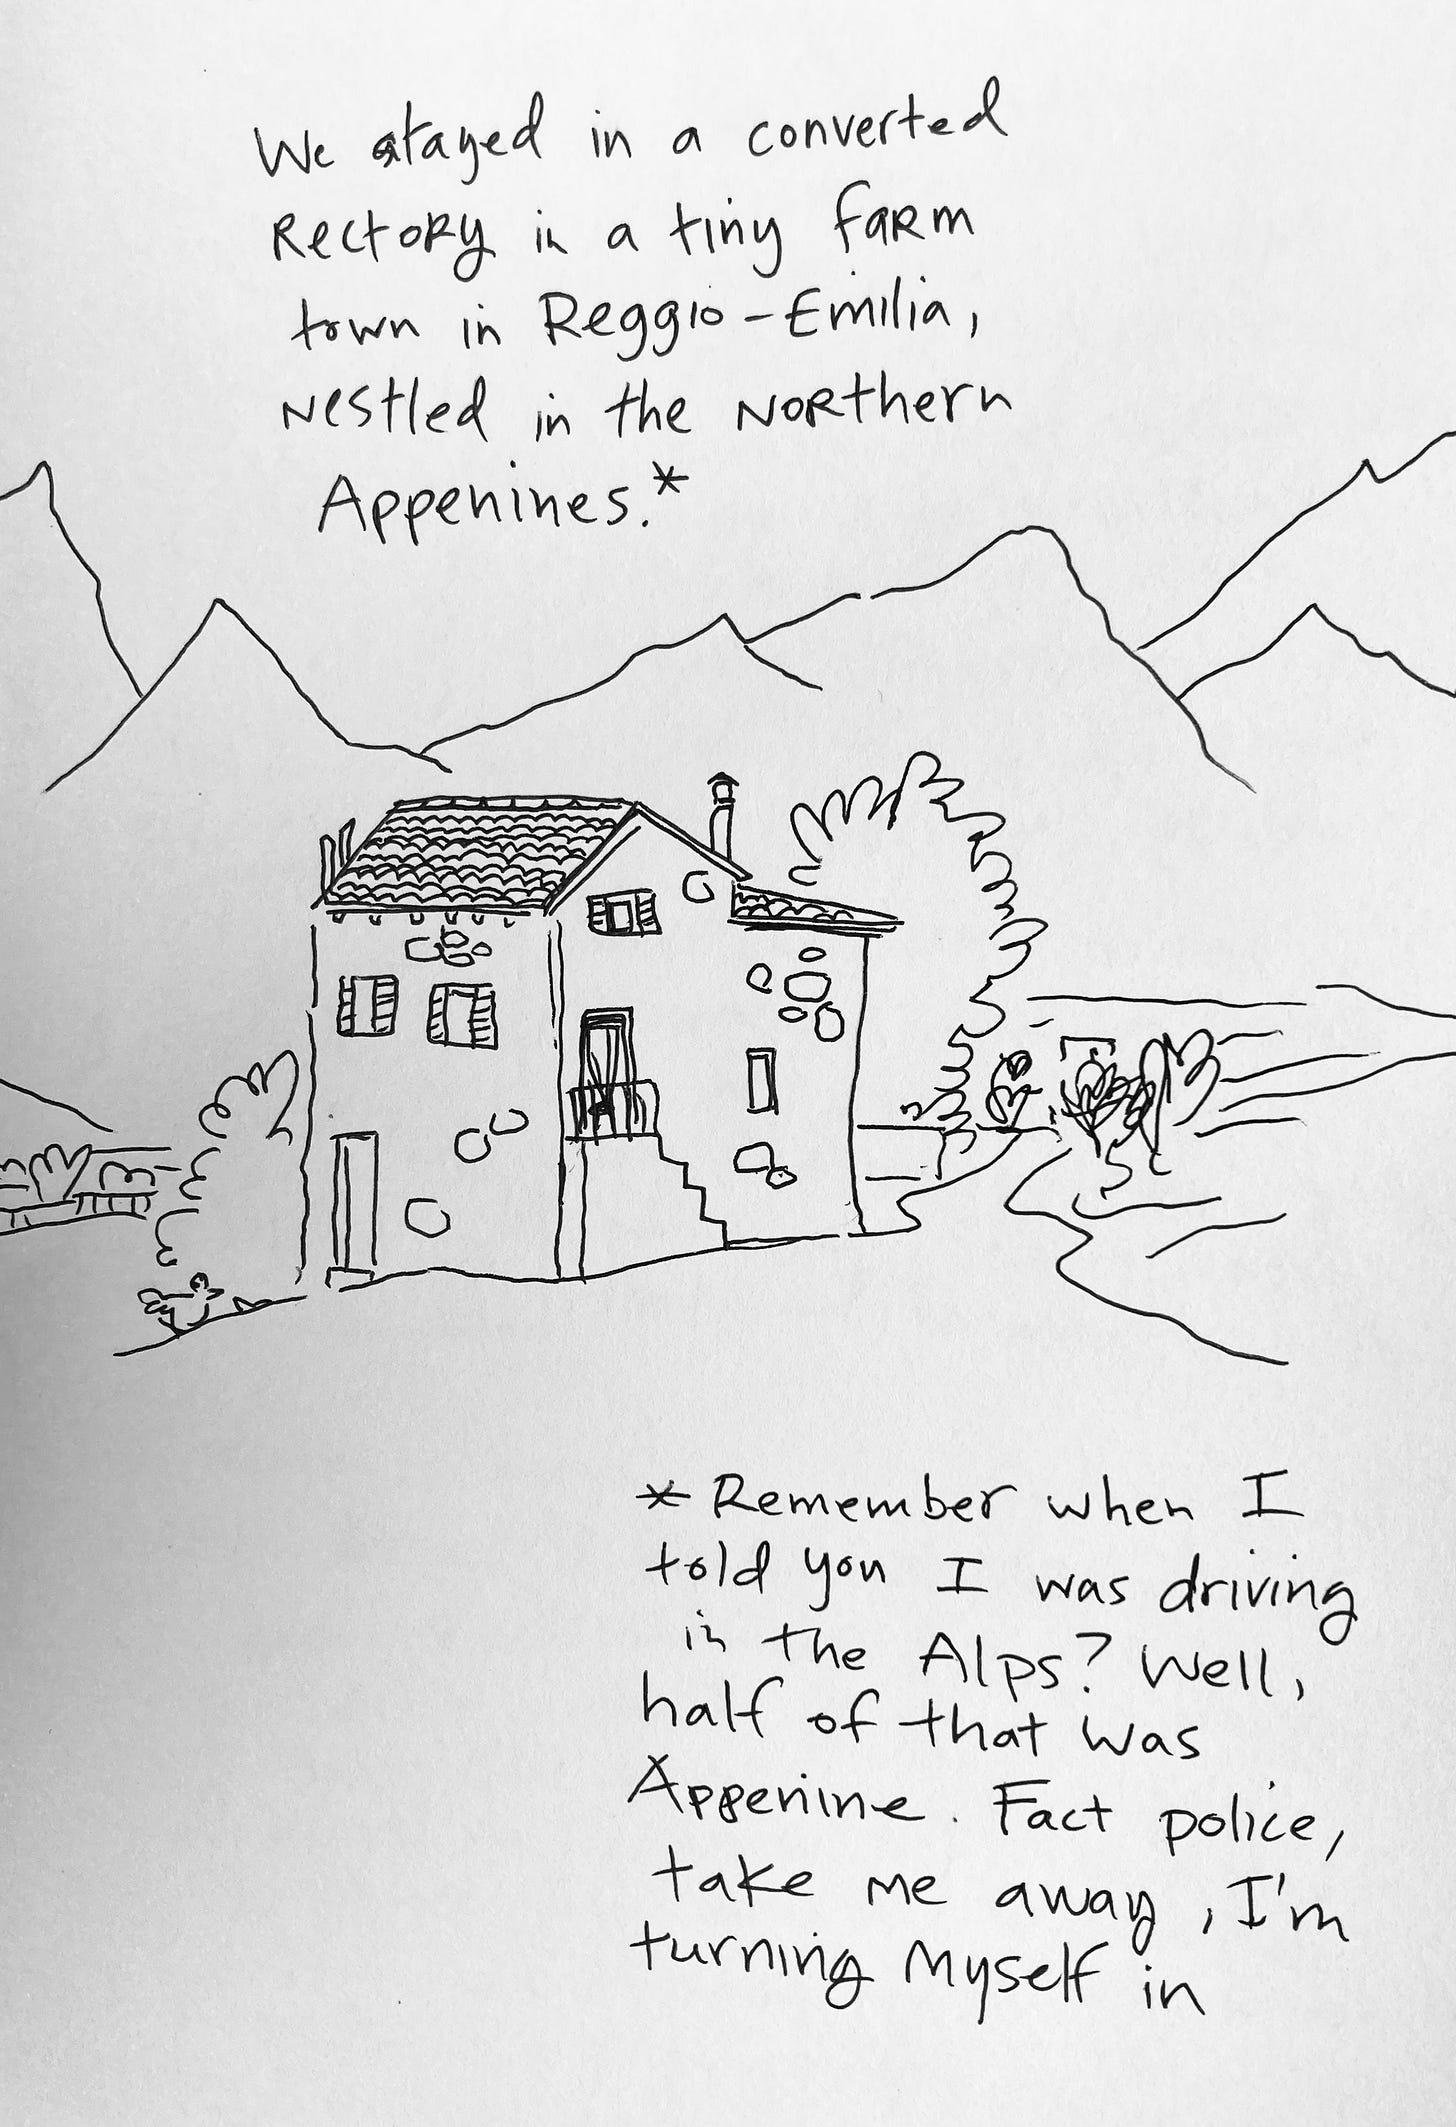 We stayed in a converted
Rectory in a tiny farm
town in Reggio-Emilia,
Nestled in the Northern
Appenines.*
* Remember when I
told you I was driving
in the Alps? Well,
half of that was
Appenine. Fact police,
take me away, I'm
turning myself in